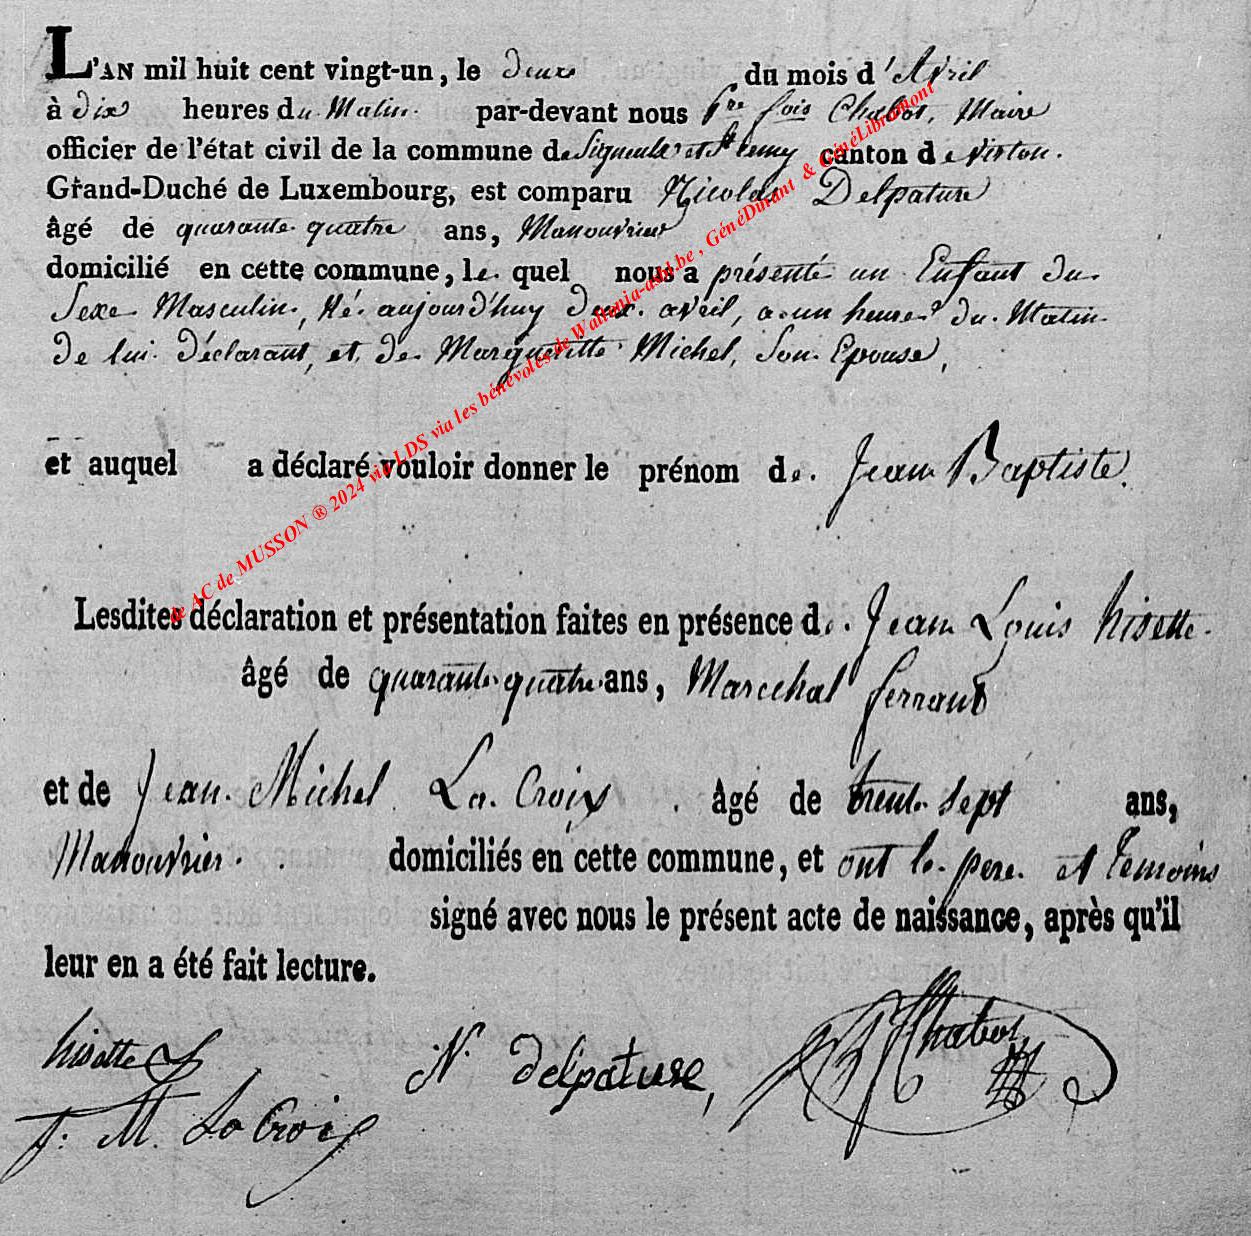 L'AN mil huit cent vingt-un, le deux du mois d'Avril
à dix heures du Matin par-devant nous Pre fois Chabot, Maire
officier de l'état civil de la commune de Signeulx et St remy canton de virton.
Grand-Duché de Luxembourg, est comparu Nicolas Delpature
âgé de quarante quatre ans, Manouvrier
domicilié en cette commune, le quel nous a présenté un Enfant du
Sexe Masculin, Né aujourd'huy deux avril, a un heure du Matin
de lui déclarant, et de Margueritte Michel, Son Epouse,
et auquel a déclaré vouloir donner le prénom de Jean Baptiste.
Lesdites déclaration et présentation faites en présence de Jean Louis hisette
âgé de quarante quatre ans, Marechal ferrant
et de Jean Michel La Croix âgé de trente sept ans,
Manouvrier domiciliés en cette commune, et ont le pere et temoins
signé avec nous le présent acte de naissance, après qu'il
leur en a été fait lecture.
hisette N. delpature, Chabot
J. M. La Croix
de AC de MUSSON ® 2024 via LDS via les bénévoles de Wallonia-asbl.be , GénéDinant & GénéLibramont